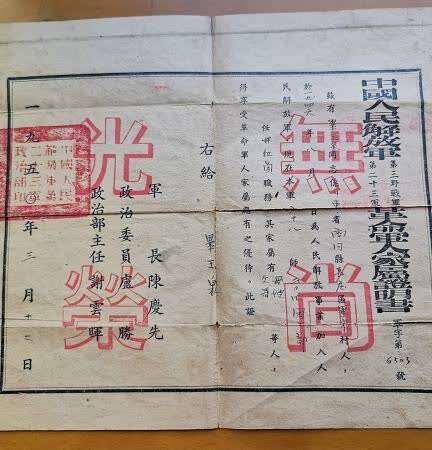 中國人民解放軍 第三野戰軍 第二十三軍 革命軍人家屬證明書
字第 6503 號
茲有 同志係 省 縣 區 村人,
於一九四六年八月 日為人民解放事業加入人
民解放軍,現在本軍六十八師
任 職務,其家屬有 等人,
得享受革命軍人家屬應有之優待。此證
右給 畢玉
軍長陳慶先
政治委員盧勝
政治部主任謝雲暉
一九五〇年三月十二日
無尚光榮
中國人民
解放軍第
二十三軍
政治部印